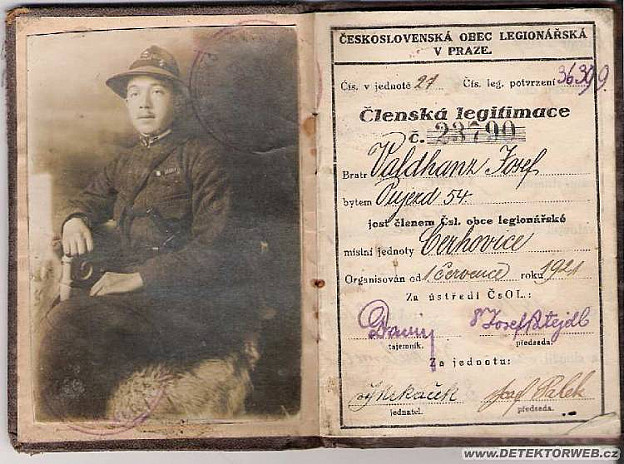 ČESKOSLOVENSKÁ OBEC LEGIONÁŘSKÁ
V PRAZE.
Čís. v jednotě 21 Čís. leg. potvrzení
Členská legitimace
č. 23790
Bratr Valdhanz Josef
bytem Újezd 54
jest členem Čsl. obce legionářské
místní jednoty Cerhovice
Organisován od 1 července roku 1921
Za ústředí ČsOL:
Josef
tajemník. předseda.
Za jednotu:
Josef Palek
jednatel. předseda.
www.DETEKTORWEB.cz